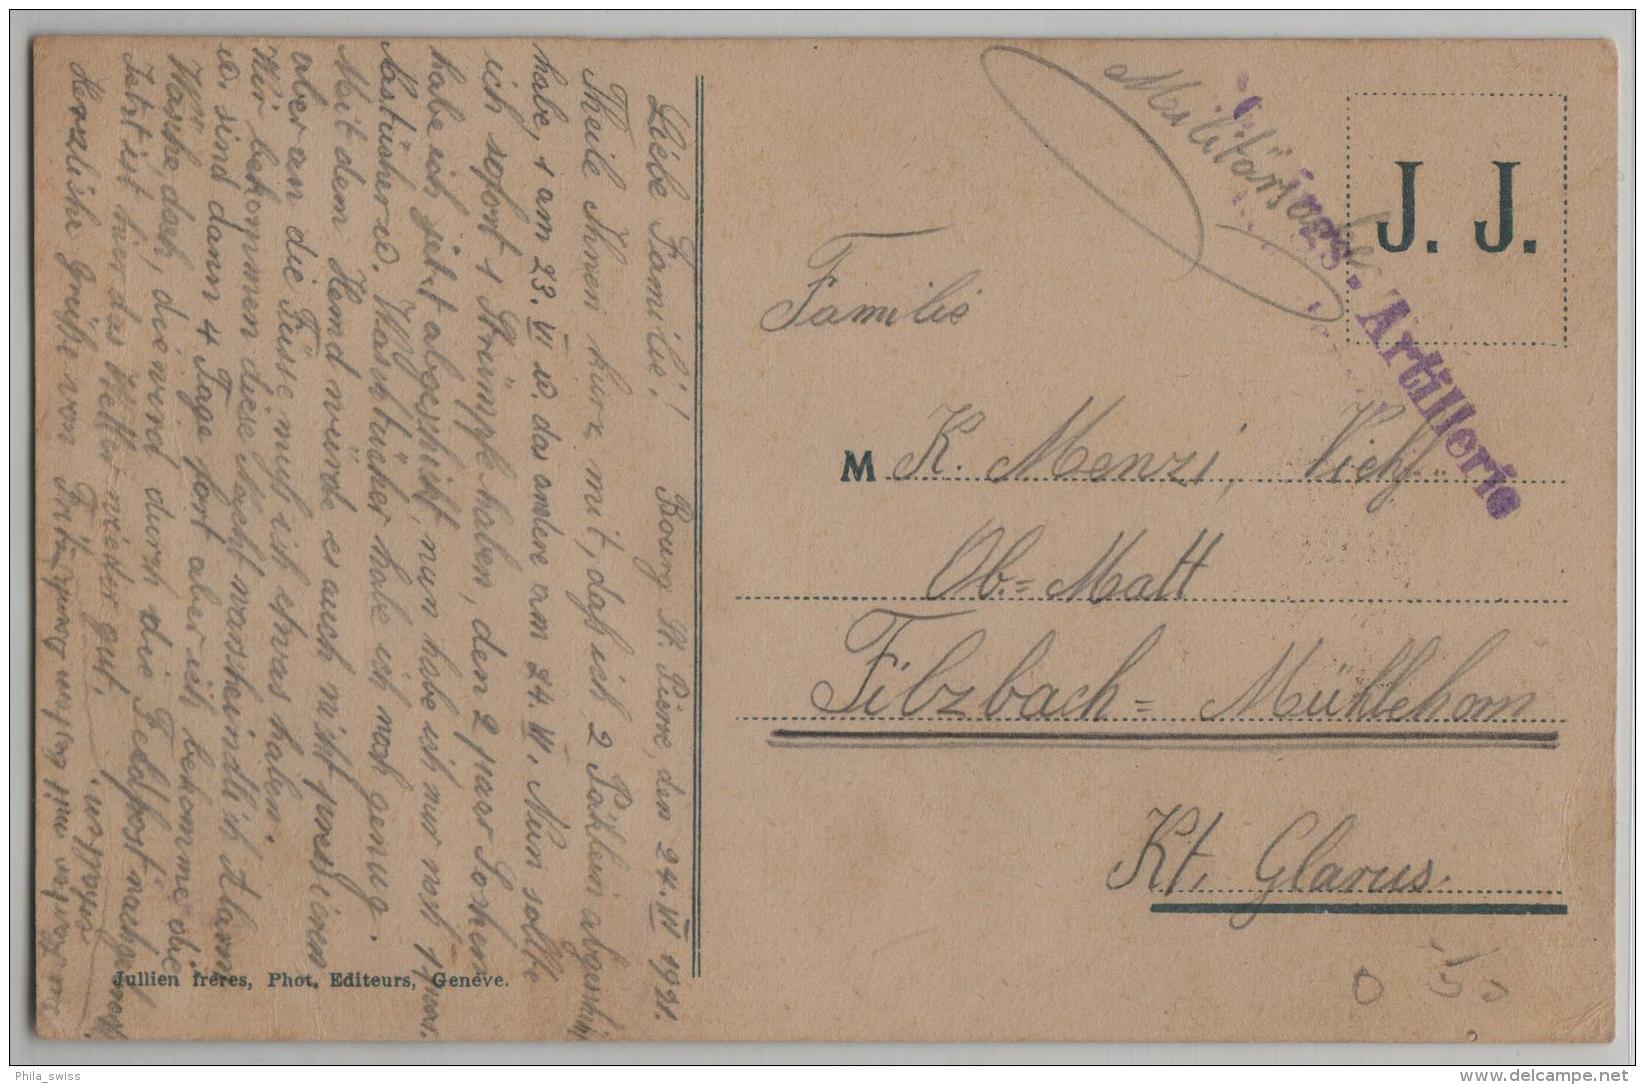 Liebe Familie!
Bourg St. Pierre, den 24. VI 1921.
Theile Ihnen kurz mit, daß ich 2 Päktlein abgeschikt
habe, 1 am 23. VI u. das andere am 24. VI, Nun sollte
ich sofort 1 Strümpfe haben, den 2 paar Soken
habe ich jetzt abgeschikt, nun habe ich nur noch 1 paar.
Nastücher u. Waschtücher habe ich noch genug.
Mit dem Hemd würde es auch nicht pressieren
aber an die Füsse muß ich etwas haben.
Wir bekommen diese Nacht warscheindlich Alarm
u. sind dann 4 Tage fort aber ich bekomme die
Wäsche doch, die wird durch die Feldpost nachgesandt
Jetzt ist hier das Wetter wieder gut.
Herzliche Grüße von
Jullien frères, Phot. Editeurs, Genève.
Militär
Artillerie
J. J.
Familie
M K. Menzi,
Ob=Matt
Filzbach= Mühlehorn
Kt. Glarus.
Phila_swiss
delcampe.net